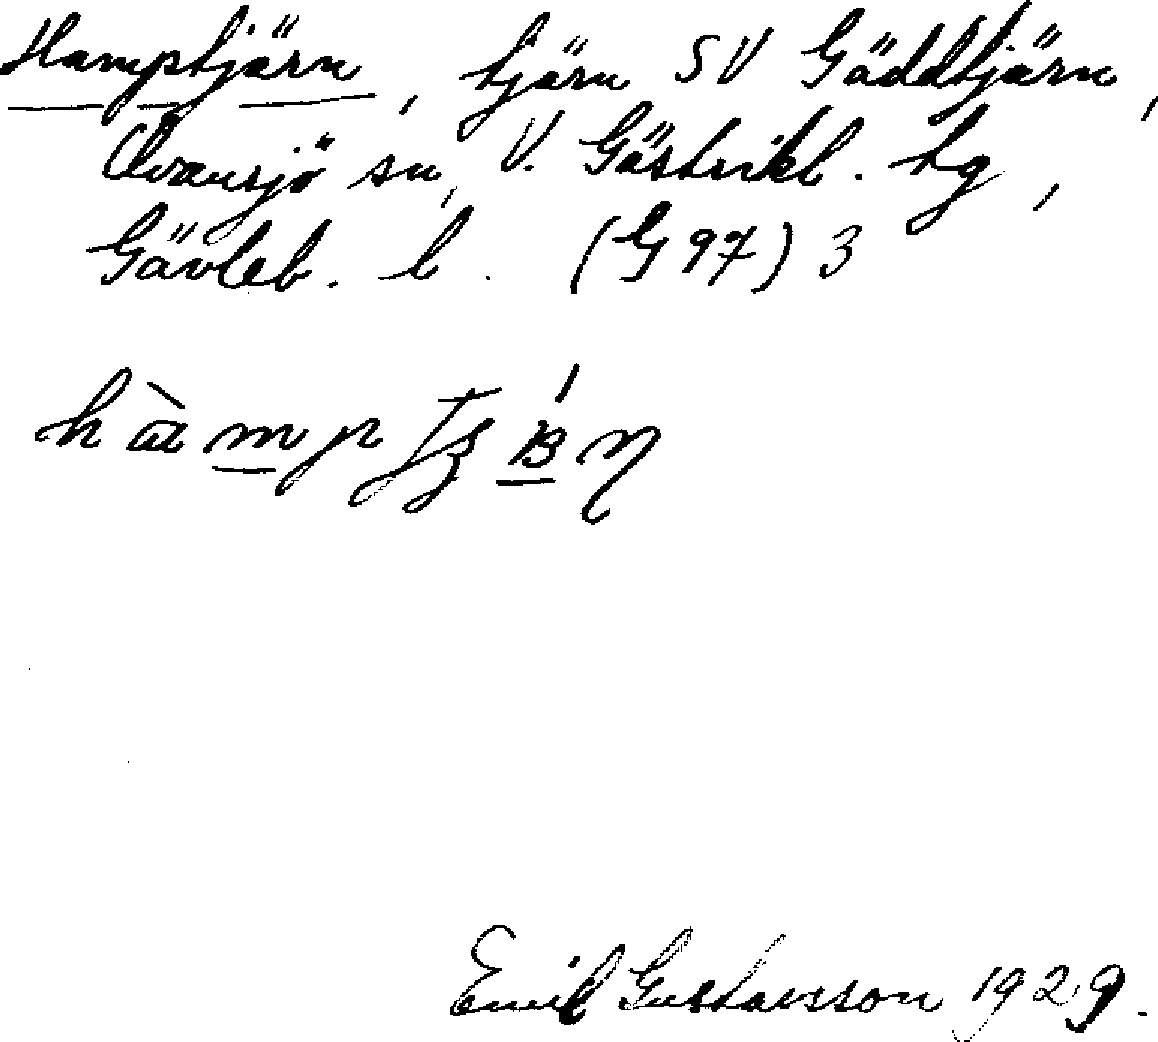 Hamptjärn, tjärn SV Gäddtjärn,
Ovansjö sn, V. Gästrikl. tg,
Gävleb. l. (G 97) 3
Emil Gustavsson 1929.